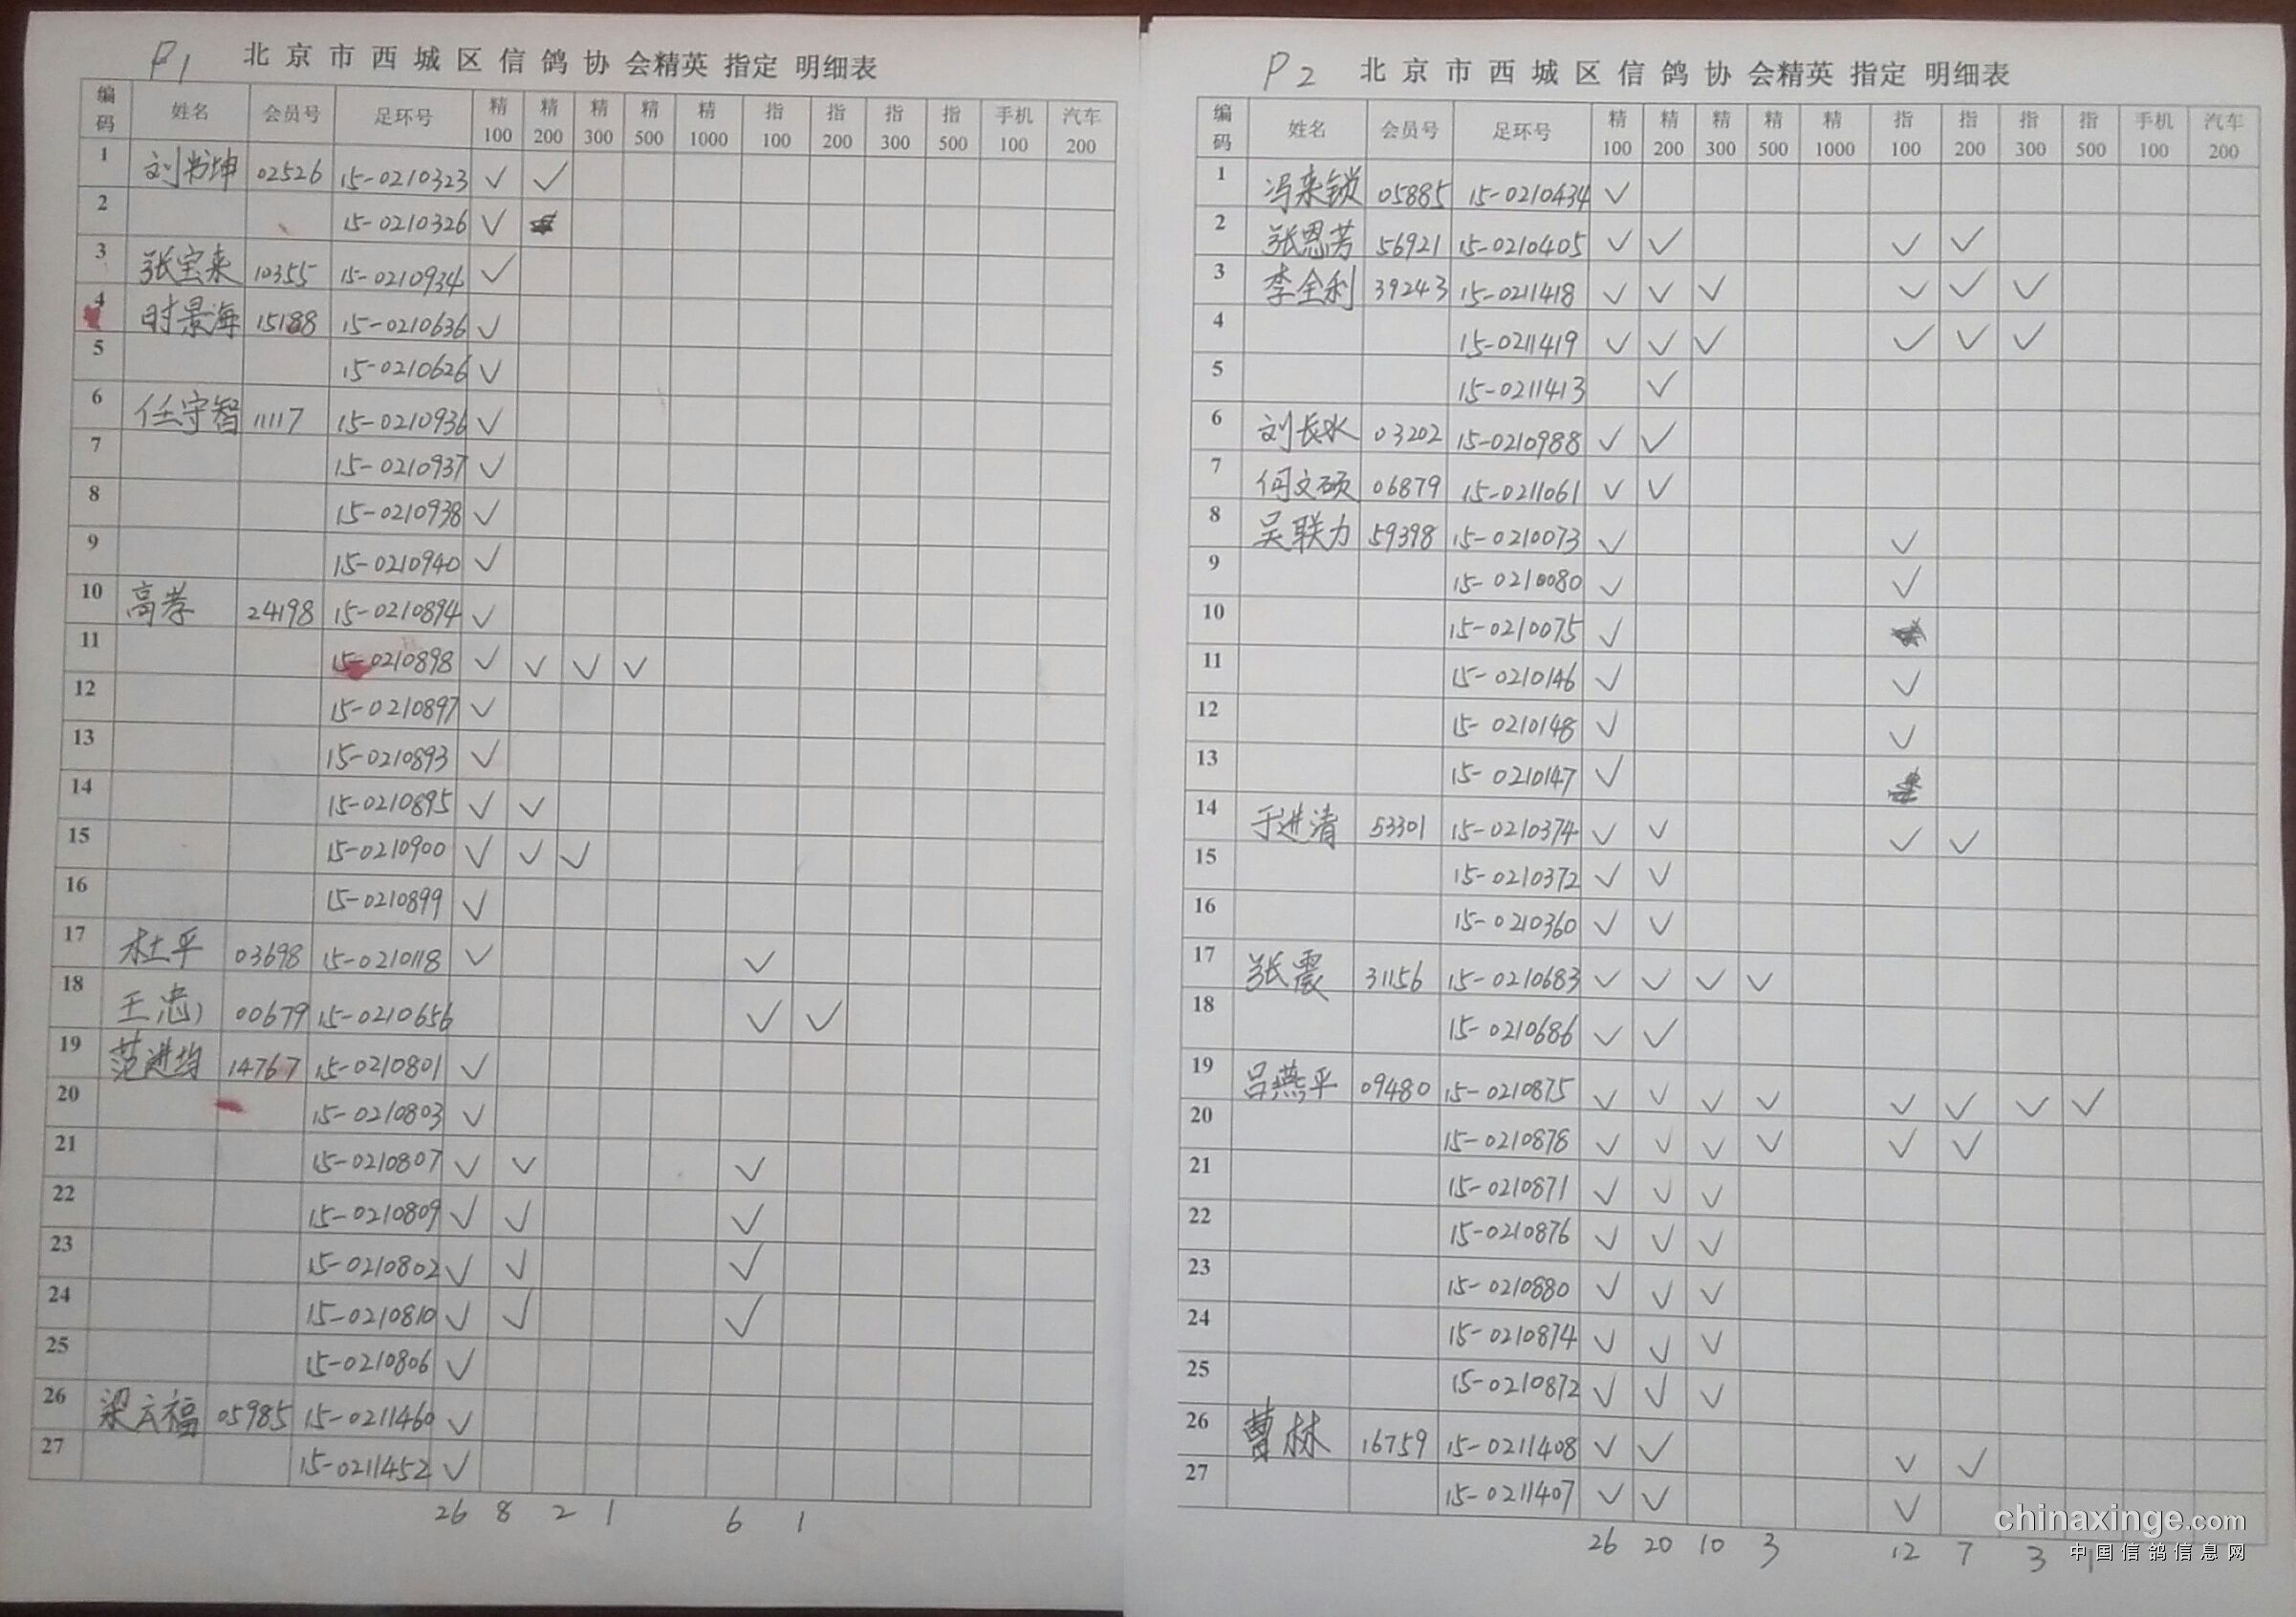 P1 北京市西城区信鸽协会精英 指定 明细表
编码 姓名 会员号 足环号 精100 精200 精300 精500 精1000 指100 指200 指300 指500 手机100 汽车200
1 刘书坤 02526 15-0210323 ✓ ✓
2 15-0210326 ✓
3 张宝来 10355 15-0210934 ✓
4 时景海 15188 15-0210636 ✓
5 15-0210626 ✓
6 任守智 11117 15-0210936 ✓
7 15-0210937 ✓
8 15-0210938 ✓
9 15-0210940 ✓
10 高孝 24198 15-0210894 ✓
11 15-0210898 ✓ ✓ ✓ ✓
12 15-0210897 ✓
13 15-0210893 ✓
14 15-0210895 ✓ ✓
15 15-0210900 ✓ ✓ ✓
16 15-0210899 ✓
17 杜平 03698 15-0210118 ✓ ✓
18 王忠 00679 15-0210656 ✓ ✓
19 范进均 14767 15-0210801 ✓
20 15-0210803 ✓
21 15-0210807 ✓ ✓ ✓
22 15-0210809 ✓ ✓ ✓
23 15-0210802 ✓ ✓ ✓
24 15-0210810 ✓ ✓ ✓
25 15-0210806 ✓
26 梁云福 05985 15-0211460 ✓
27 15-0211452 ✓
26 8 2 1 6 1
P2 北京市西城区信鸽协会精英 指定 明细表
编码 姓名 会员号 足环号 精100 精200 精300 精500 精1000 指100 指200 指300 指500 手机100 汽车200
1 冯来锁 05885 15-0210434 ✓
2 张恩芳 56921 15-0210405 ✓ ✓ ✓ ✓
3 李全利 39243 15-0211418 ✓ ✓ ✓ ✓ ✓ ✓
4 15-0211419 ✓ ✓ ✓ ✓ ✓ ✓
5 15-0211413 ✓
6 刘长水 03202 15-0210988 ✓ ✓
7 何文硕 06879 15-0211061 ✓ ✓
8 吴联力 59398 15-0210073 ✓ ✓
9 15-0210080 ✓ ✓
10 15-0210075 ✓
11 15-0210146 ✓ ✓
12 15-0210148 ✓ ✓
13 15-0210147 ✓
14 于进清 53301 15-0210374 ✓ ✓ ✓ ✓
15 15-0210372 ✓ ✓
16 15-0210360 ✓ ✓
17 张震 31156 15-0210683 ✓ ✓ ✓ ✓
18 15-0210686 ✓ ✓
19 吕燕平 09480 15-0210875 ✓ ✓ ✓ ✓ ✓ ✓ ✓ ✓
20 15-0210878 ✓ ✓ ✓ ✓ ✓ ✓
21 15-0210871 ✓ ✓ ✓
22 15-0210876 ✓ ✓ ✓
23 15-0210880 ✓ ✓ ✓
24 15-0210874 ✓ ✓ ✓
25 15-0210872 ✓ ✓ ✓
26 曹林 16759 15-0211408 ✓ ✓ ✓ ✓
27 15-0211407 ✓ ✓ ✓
26 20 10 3 12 7 3 1
chinaxinge.com
中国信鸽信息网